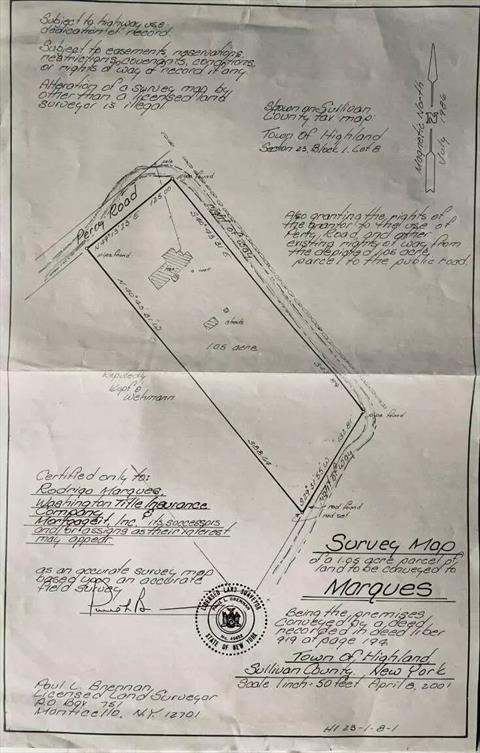 Subject to highway use
dedication of record.
Subject to easements, reservations,
restrictions, covenants, conditions,
or rights of way of record if any.
Alteration of a survey map by
other than a licensed land
surveyor is illegal.
Shown on Sullivan
County tax map:
Town Of Highland
Section 23, Block 1, Lot 8
Magnetic North
July 1986
Also granting the rights of
the grantor to the use of
Perry Road and other
existing rights of way, from
the depicted 1.05 acre
parcel to the public road
Perry Road
125.00
pipe found
Right of Way
pipe found
sheds
1.05 acre
Reputedly
Wehmann
pipe found
132.81
Right of Way
rod found
rod set
Certified only to:
Rodrigo Marques,
Washington Title Insurance
Company,
Mortgageit, Inc. its successors
and/or assigns as their interest
may appear
as an accurate survey map
based upon an accurate
field survey
LICENSED LAND SURVEYOR
PAUL L. BRENNAN
STATE OF NEW YORK
Survey Map
of a 1.05 acre parcel of
land to be conveyed to
Marques
Being the premises
conveyed by a deed
recorded in deed liber
919 at page 194
Town Of Highland
Sullivan County, New York
Scale 1 inch = 50 feet April 8, 2001
Paul L. Brennan
Licensed Land Surveyor
P.O. Box 751
Monticello, N.Y. 12701
HI 23-1-8-1